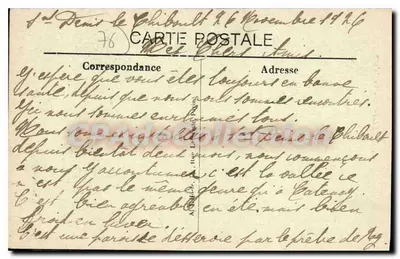 St Denis le Thiboult 26 Novembre 1926
(76)
CARTE POSTALE
Mes Chers Amis
Correspondance Adresse
J'espère que vous êtes toujours en bonne
santé depuis que nous nous sommes rencontrés.
Ici nous sommes
Nous sommes à St Denis le Thiboult
depuis bientôt deux mois, nous commençons
à nous y accoutumer c'est la vallée ce
n'est pas le même genre qu'à Catenay
C'est bien agréable en été mais bien
froid en hiver
C'est une paroisse desservie par le prêtre de Ry